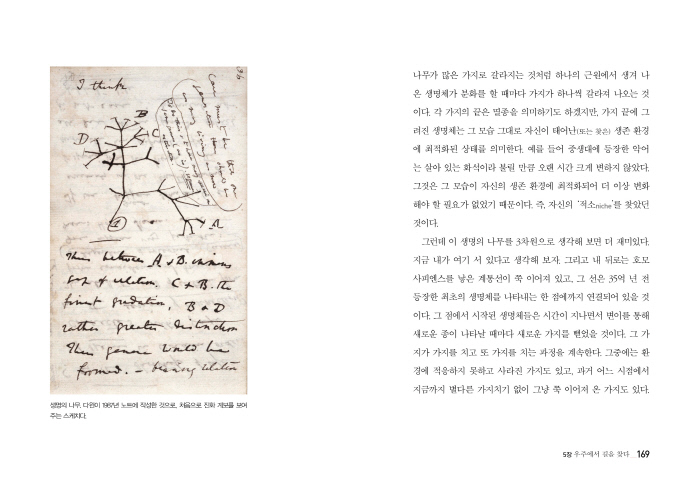 36
I think
B
D
C
A
1
Thus between A & B. immense
gap of relation. C & B. the
finest gradation, B & D
rather greater distinction
Thus genera would be
formed. — bearing relation
생명의 나무. 다윈이 1987년 노트에 작성한 것으로, 처음으로 진화 계보를 보여
주는 스케치다.
나무가 많은 가지로 갈라지는 것처럼 하나의 근원에서 생겨 나
온 생명체가 분화를 할 때마다 가지가 하나씩 갈라져 나오는 것
이다. 각 가지의 끝은 멸종을 의미하기도 하겠지만, 가지 끝에 그
려진 생명체는 그 모습 그대로 자신이 태어난(또는 찾은) 생존 환경
에 최적화된 상태를 의미한다. 예를 들어 중생대에 등장한 악어
는 살아 있는 화석이라 불릴 만큼 오랜 시간 크게 변하지 않았다.
그것은 그 모습이 자신의 생존 환경에 최적화되어 더 이상 변화
해야 할 필요가 없었기 때문이다. 즉, 자신의 ‘적소niche’를 찾았던
것이다.
그런데 이 생명의 나무를 3차원으로 생각해 보면 더 재미있다.
지금 내가 여기 서 있다고 생각해 보자. 그리고 내 뒤로는 호모
사피엔스를 낳은 계통선이 쭉 이어져 있고, 그 선은 35억 년 전
등장한 최초의 생명체를 나타내는 한 점에까지 연결되어 있을 것
이다. 그 점에서 시작된 생명체들은 시간이 지나면서 변이를 통해
새로운 종이 나타날 때마다 새로운 가지를 뻗었을 것이다. 그 가
지가 가지를 치고 또 가지를 치는 과정을 계속한다. 그중에는 환
경에 적응하지 못하고 사라진 가지도 있고, 과거 어느 시점에서
지금까지 별다른 가지치기 없이 그냥 쭉 이어져 온 가지도 있다.
5장 우주에서 길을 찾다 169